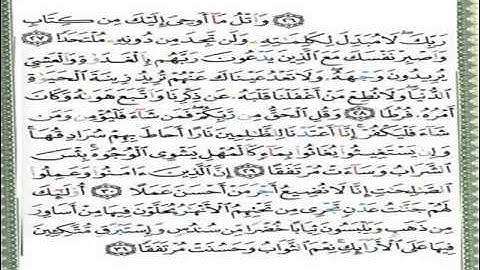 ۝٢٦ وَاتْلُ مَا أُوحِيَ إِلَيْكَ مِن كِتَابِ
رَبِّكَ لَا مُبَدِّلَ لِكَلِمَٰتِهِۦ وَلَن تَجِدَ مِن دُونِهِۦ مُلْتَحَدًا ۝٢٧
وَاصْبِرْ نَفْسَكَ مَعَ الَّذِينَ يَدْعُونَ رَبَّهُم بِالْغَدَوٰةِ وَالْعَشِيِّ
يُرِيدُونَ وَجْهَهُۥ وَلَا تَعْدُ عَيْنَاكَ عَنْهُمْ تُرِيدُ زِينَةَ الْحَيَوٰةِ
الدُّنْيَا وَلَا تُطِعْ مَنْ أَغْفَلْنَا قَلْبَهُۥ عَن ذِكْرِنَا وَاتَّبَعَ هَوَىٰهُ وَكَانَ
أَمْرُهُۥ فُرُطًا ۝٢٨ وَقُلِ الْحَقُّ مِن رَّبِّكُمْ فَمَن شَاءَ فَلْيُؤْمِن وَمَن
شَاءَ فَلْيَكْفُرْ إِنَّا أَعْتَدْنَا لِلظَّٰلِمِينَ نَارًا أَحَاطَ بِهِمْ سُرَادِقُهَا
وَإِن يَسْتَغِيثُوا يُغَاثُوا بِمَاءٍ كَالْمُهْلِ يَشْوِي الْوُجُوهَ بِئْسَ
الشَّرَابُ وَسَاءَتْ مُرْتَفَقًا ۝٢٩ إِنَّ الَّذِينَ ءَامَنُوا وَعَمِلُوا
الصَّٰلِحَٰتِ إِنَّا لَا نُضِيعُ أَجْرَ مَنْ أَحْسَنَ عَمَلًا ۝٣٠ أُولَٰئِكَ
لَهُمْ جَنَّٰتُ عَدْنٍ تَجْرِي مِن تَحْتِهِمُ الْأَنْهَٰرُ يُحَلَّوْنَ فِيهَا مِنْ أَسَاوِرَ
مِن ذَهَبٍ وَيَلْبَسُونَ ثِيَابًا خُضْرًا مِّن سُندُسٍ وَإِسْتَبْرَقٍ مُّتَّكِـِٔينَ
فِيهَا عَلَى الْأَرَائِكِ نِعْمَ الثَّوَابُ وَحَسُنَتْ مُرْتَفَقًا ۝٣١